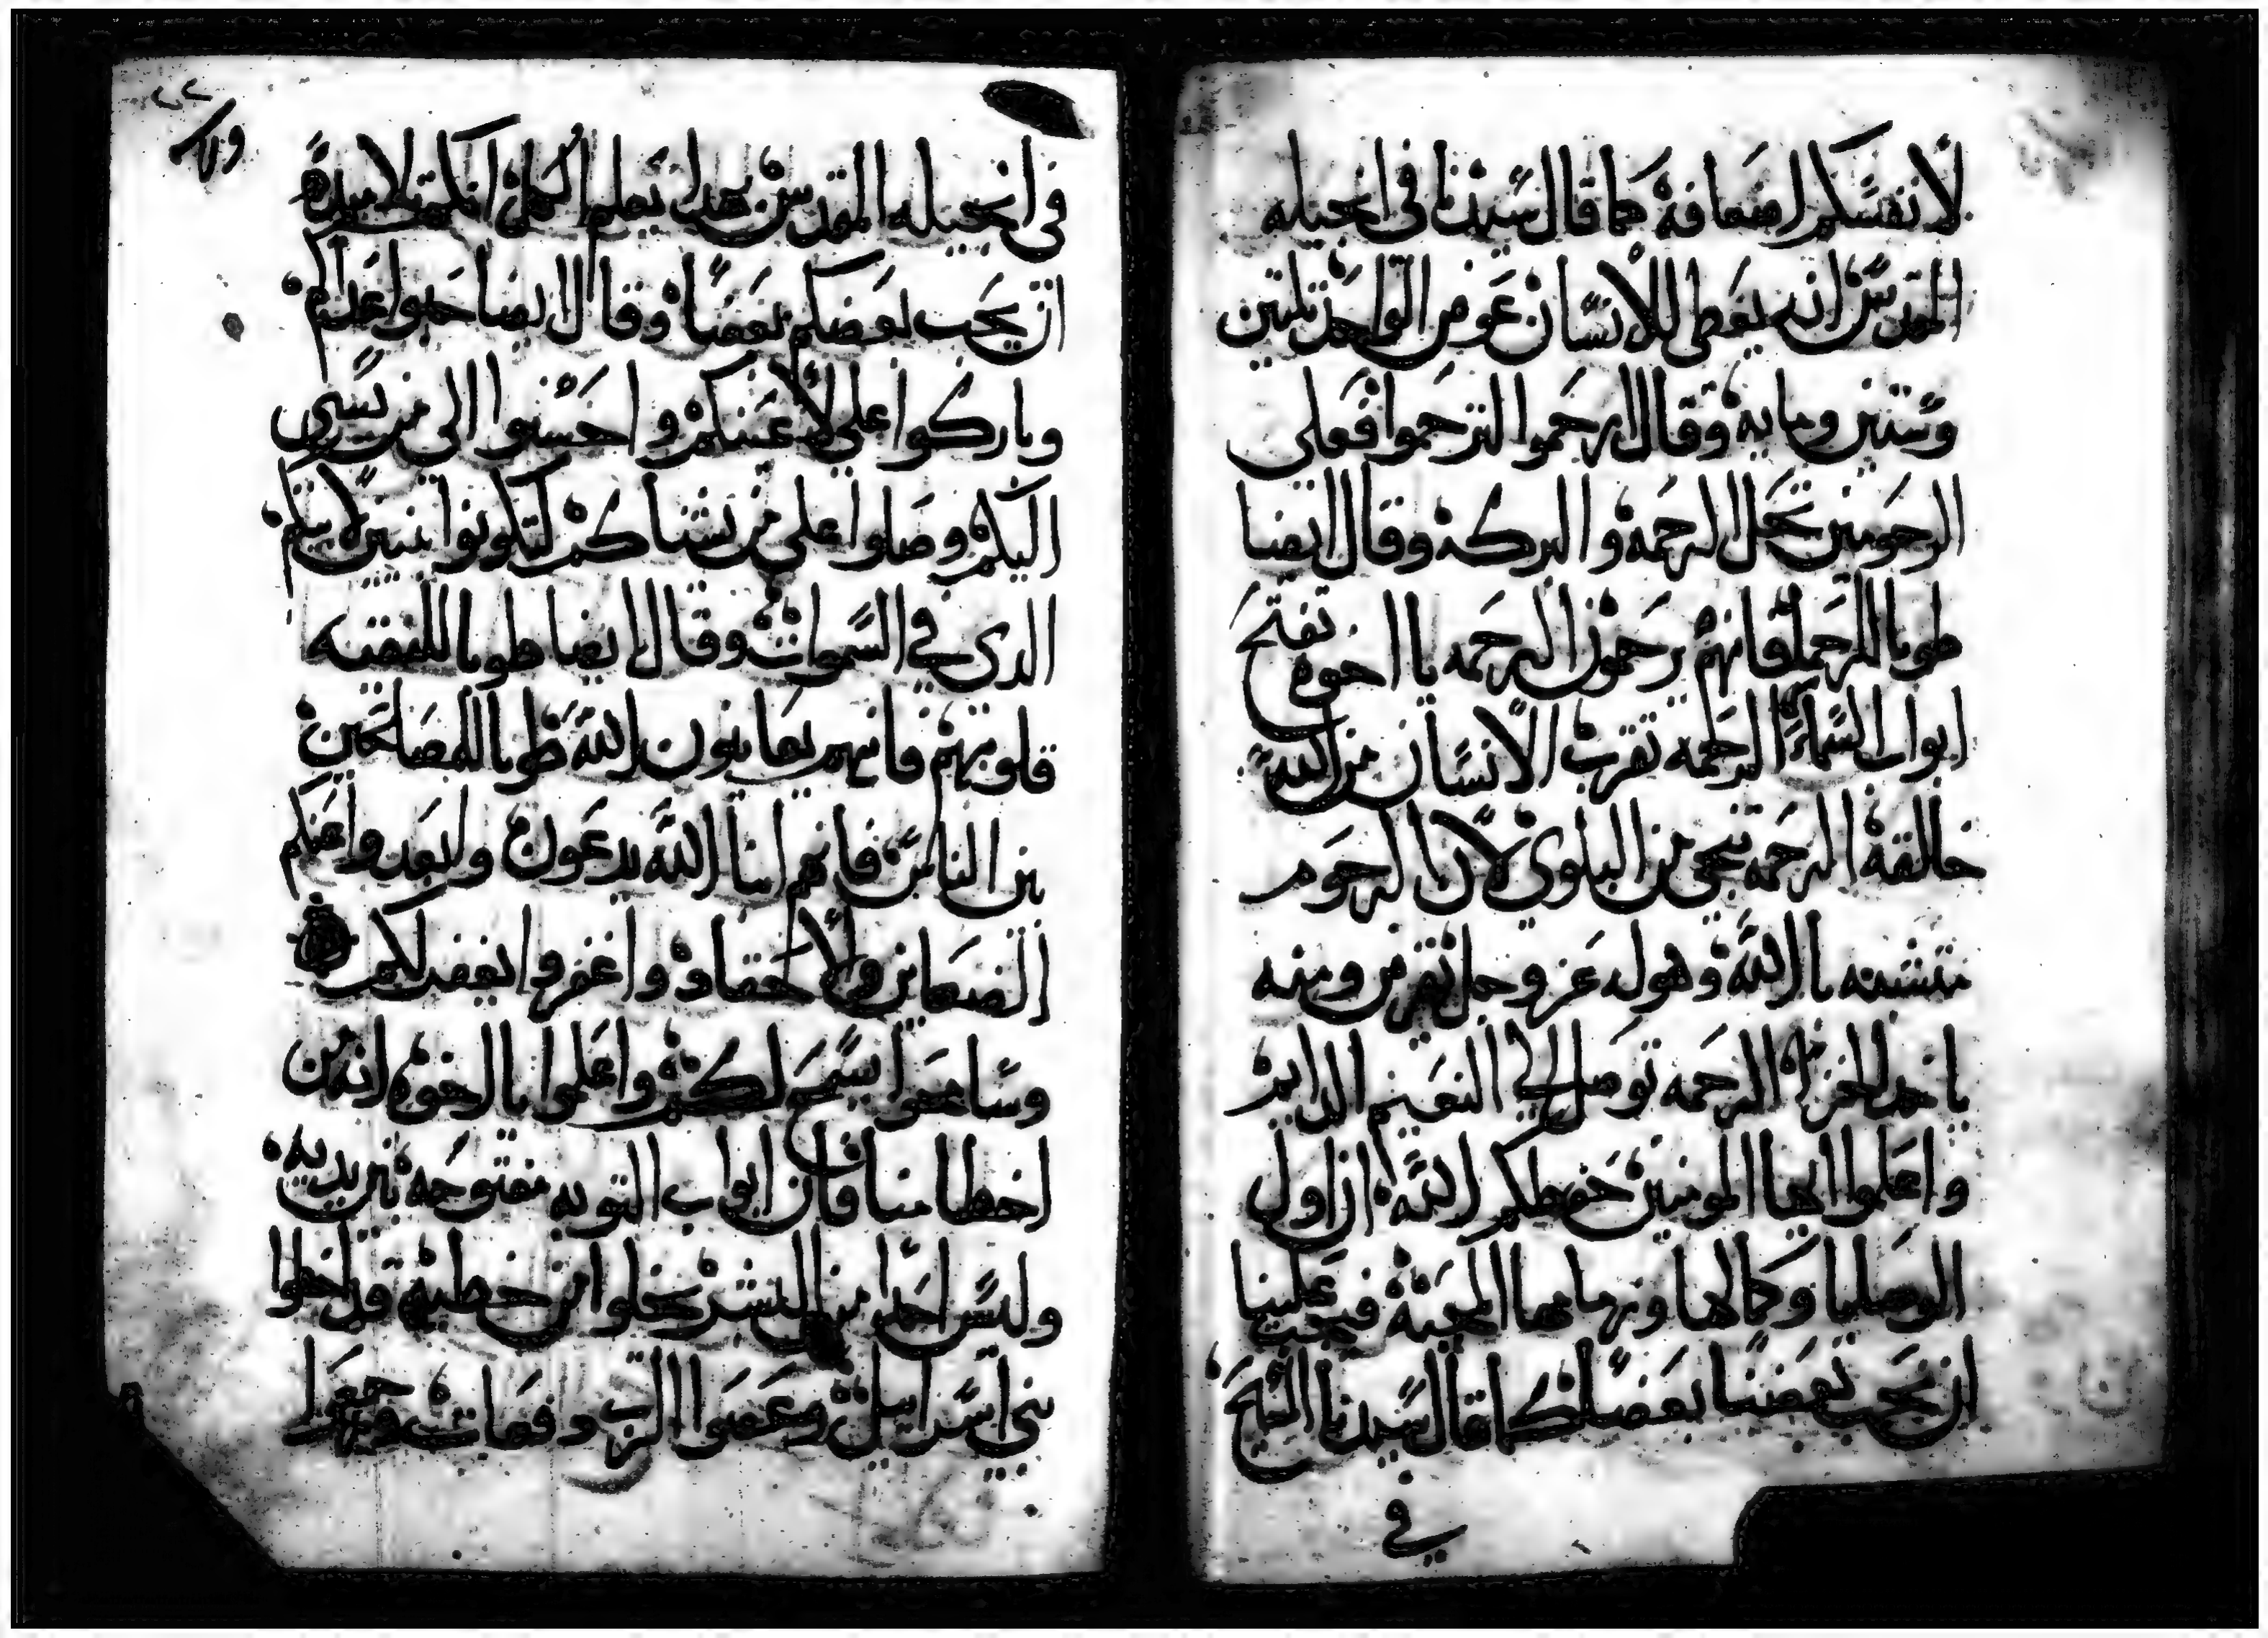 لانفسكم اضعافه كما قال سيدنا في انجيله
المقدس انه يعطي للانسان عوض الواحد ثلثين
وستين ومايه وقال ارحموا لترحموا فعلي
الرحومين تحل الرحمه والبركه وقال ايضا
طوبا للرحما فانهم يرحمون الرحمه يا اخوه تفتح
ابواب السماء الرحمه تقرب الانسان من الله
خالقه الرحمه تنجي من البلوي لان الرحوم
متشبه بالله وهوله عز وجل ومنه
ياخد الجزا الرحمه توصل الي النعيم الدايم
واعلموا ايها المومنين حفظكم الله ان اول
الوصايا وكمالها ونهايتها المحبه فيجب علينا
ان نحب بعضنا بعضا كما قال سيدنا المسيح
في
في انجيله المقدس بهدا يعلم الكل انكم تلاميدي
ان يحب بعضكم بعضا وقال ايضا حبوا اعداكم
وباركوا علي لاعنيكم واحسنوا الي من يسي
اليكم وصلوا علي من يشناكم لتكونوا بنين لابيكم
الدي في السموات وقال ايضا طوبا للنقيه
قلوبهم فانهم يعاينون الله طوبا للمصالحين
بين الناس فانهم ابنا الله يدعون وابعدوا عنكم
الضغاين والاحقاد واغفروا يغفر لكم
وسامحوا يسمح لكم واعلموا يا اخوه انه من
اخطا منا فان ابواب التوبه مفتوحه بين يديه
وليس احدا من البشر يخلوا من خطيه قد اخطوا
بني اسراييل وعصوا الرب